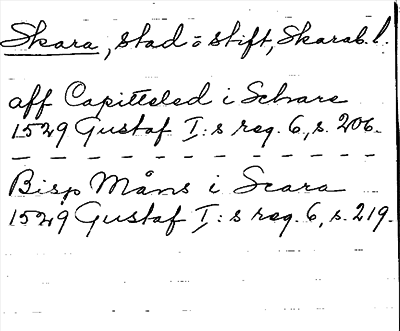 Skara, stad o stift, Skarab. l.
aff Capitteled i Schare
1529 Gustaf I:s reg. 6, s. 206.
Bisp Måns i Scara
1529 Gustaf I:s reg. 6, s. 219.